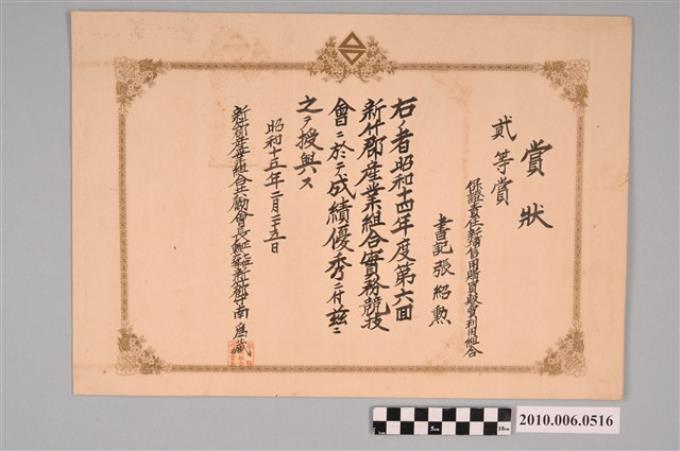 賞狀
貳等賞
保證責任新埔信用購買販賣利用組合
書記張紹勲
右ノ者昭和十四年度第六回
新竹郡產業組合實務競技
會ニ於テ成績優秀ニ付茲ニ
之ヲ授與ス
昭和十五年二月二十五日
新竹郡產業組合共勵會長
南為藏
5cm
10cm
2010.006.0516